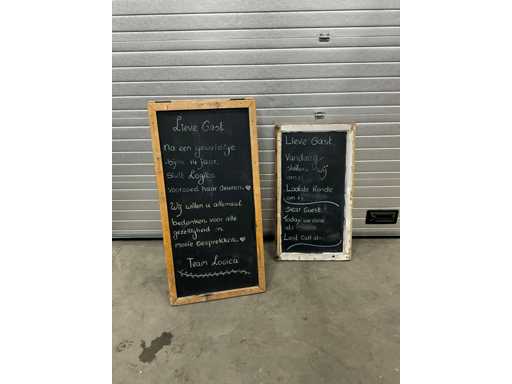 Lieve Gast
Na een geweldige
bijna 14 jaar,
sluit Logica
voorgoed haar deuren.
Wij willen u allemaal
bedanken voor alle
gezelligheid en
mooie gesprekken.
Team Logica
Lieve Gast
Vandaag
sluiten wij
om
Laatste Ronde
om
Dear Guest
Today we close
at
Last Call at